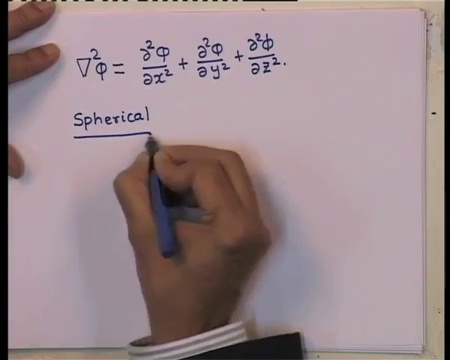 ∇²φ = ∂²φ/∂x² + ∂²φ/∂y² + ∂²φ/∂z².
Spherical